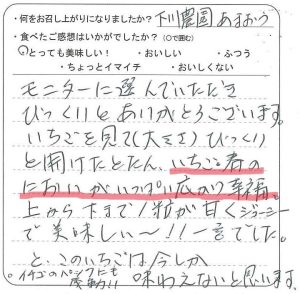 ・何をお召し上がりになりましたか？下川農園あまおう
・食べたご感想はいかがでしたか？（○で囲む）
・とっても美味しい！ ・おいしい ・ふつう
・ちょっとイマイチ ・おいしくない
モニターに選んでいただき
びっくりとありがとうございます。
いちごを見て（大きさ）びっくり
と開けたとたん、いちご春の
においがいっぱい広がり幸福。
上から下まで1粒が甘くジューシー
で美味しい〜!!一言でした。
と、このいちごは今しか
味わえないと思います。
。イチゴの にも
感動!!